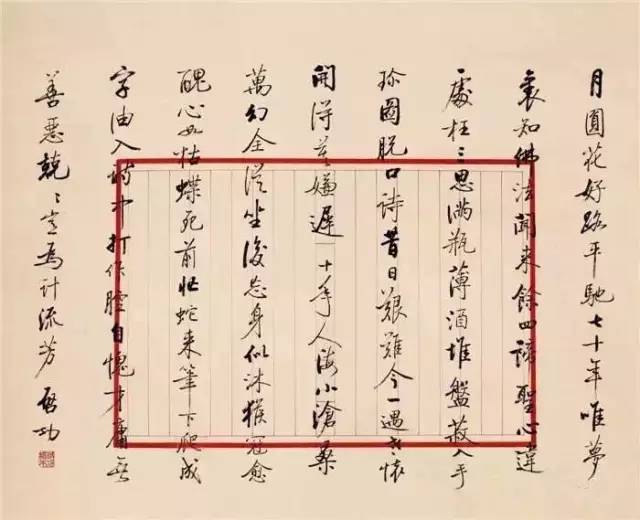 月圓花好路平馳七十年唯夢
裏知佛法聞来餘四諦聖心違
處枉三思滿瓶薄酒堆盤菽入手
珍圖脱口詩昔日艱難今一遇老懷
開得莫嫌遲十年人海小滄桑
萬幻全從坐後忘身似沐猴冠愈
醜心如枯蝶死前忙蛇来筆下爬成
字油入詩中打作腔自愧才庸無
善惡兢〻豈為計流芳 啓功